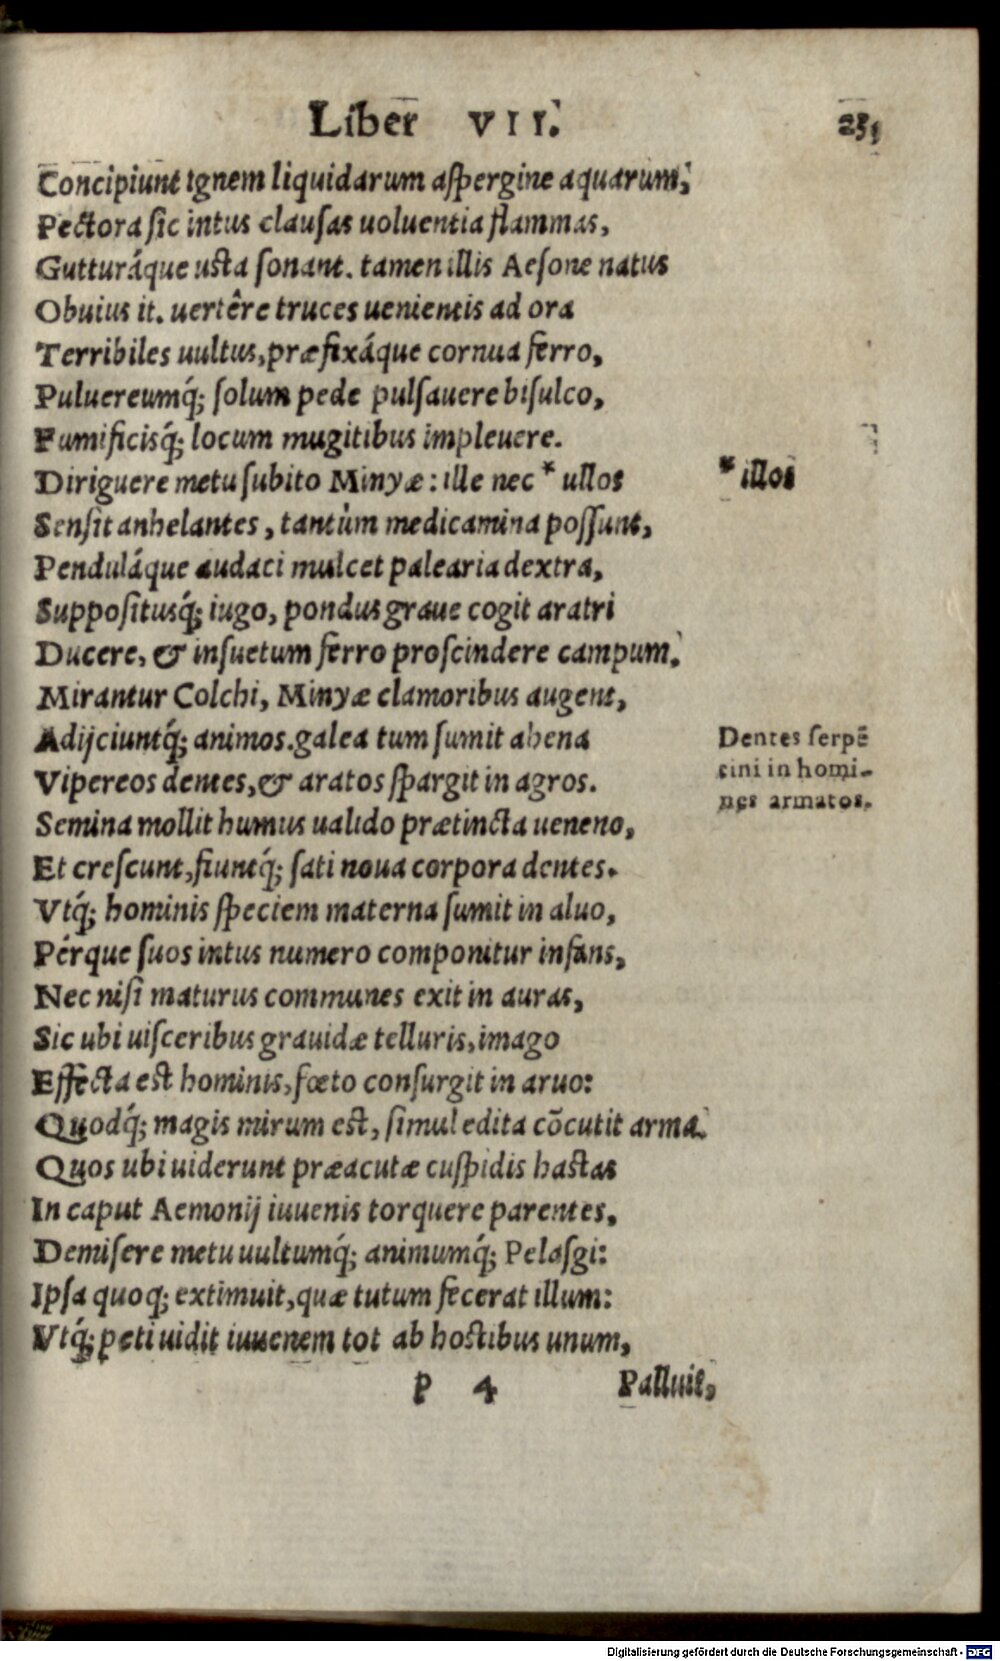 Liber VII. 235
Concipiunt ignem liquidarum aſpergine aquarum;
Pectora ſic intus clauſas uoluentia flammas,
Gutturáque uſta ſonant. tamen illis Aeſone natus
Obuius it. uertêre truces uenientis ad ora
Terribiles uultus, præfixáque cornua ferro,
Puluereumq́; ſolum pede pulſauere biſulco,
Fumificisq́; locum mugitibus impleuere.
Diriguere metu ſubito Minyæ: ille nec * ullos
* illos
Senſit anhelantes, tantùm medicamina poſſunt,
Penduláque audaci mulcet palearia dextra,
Suppoſitusq́; iugo, pondus graue cogit aratri
Ducere, & inſuetum ferro proſcindere campum.
Mirantur Colchi, Minyæ clamoribus augent,
Adijciuntq́; animos. galea tum ſumit ahena
Vipereos dentes, & aratos ſpargit in agros.
Dentes ſerpē
tini in homi-
nes armatos.
Semina mollit humus ualido prætincta ueneno,
Et creſcunt, fiuntq́; ſati noua corpora dentes.
Vtq́; hominis ſpeciem materna ſumit in aluo,
Pérque ſuos intus numero componitur infans,
Nec niſi maturus communes exit in auras,
Sic ubi uiſceribus grauidæ telluris, imago
Effecta est hominis, fœto conſurgit in aruo:
Quodq́; magis mirum est, ſimul edita cōcutit arma.
Quos ubi uiderunt præacutæ cuſpidis hastas
In caput Aemonij iuuenis torquere parentes,
Demiſere metu uultumq́; animumq́; Pelaſgi:
Ipſa quoq; extimuit, quæ tutum fecerat illum:
Vtq́; peti uidit iuuenem tot ab hostibus unum,
P 4 Palluit,
Digitalisierung gefördert durch die Deutsche Forschungsgemeinschaft - DFG